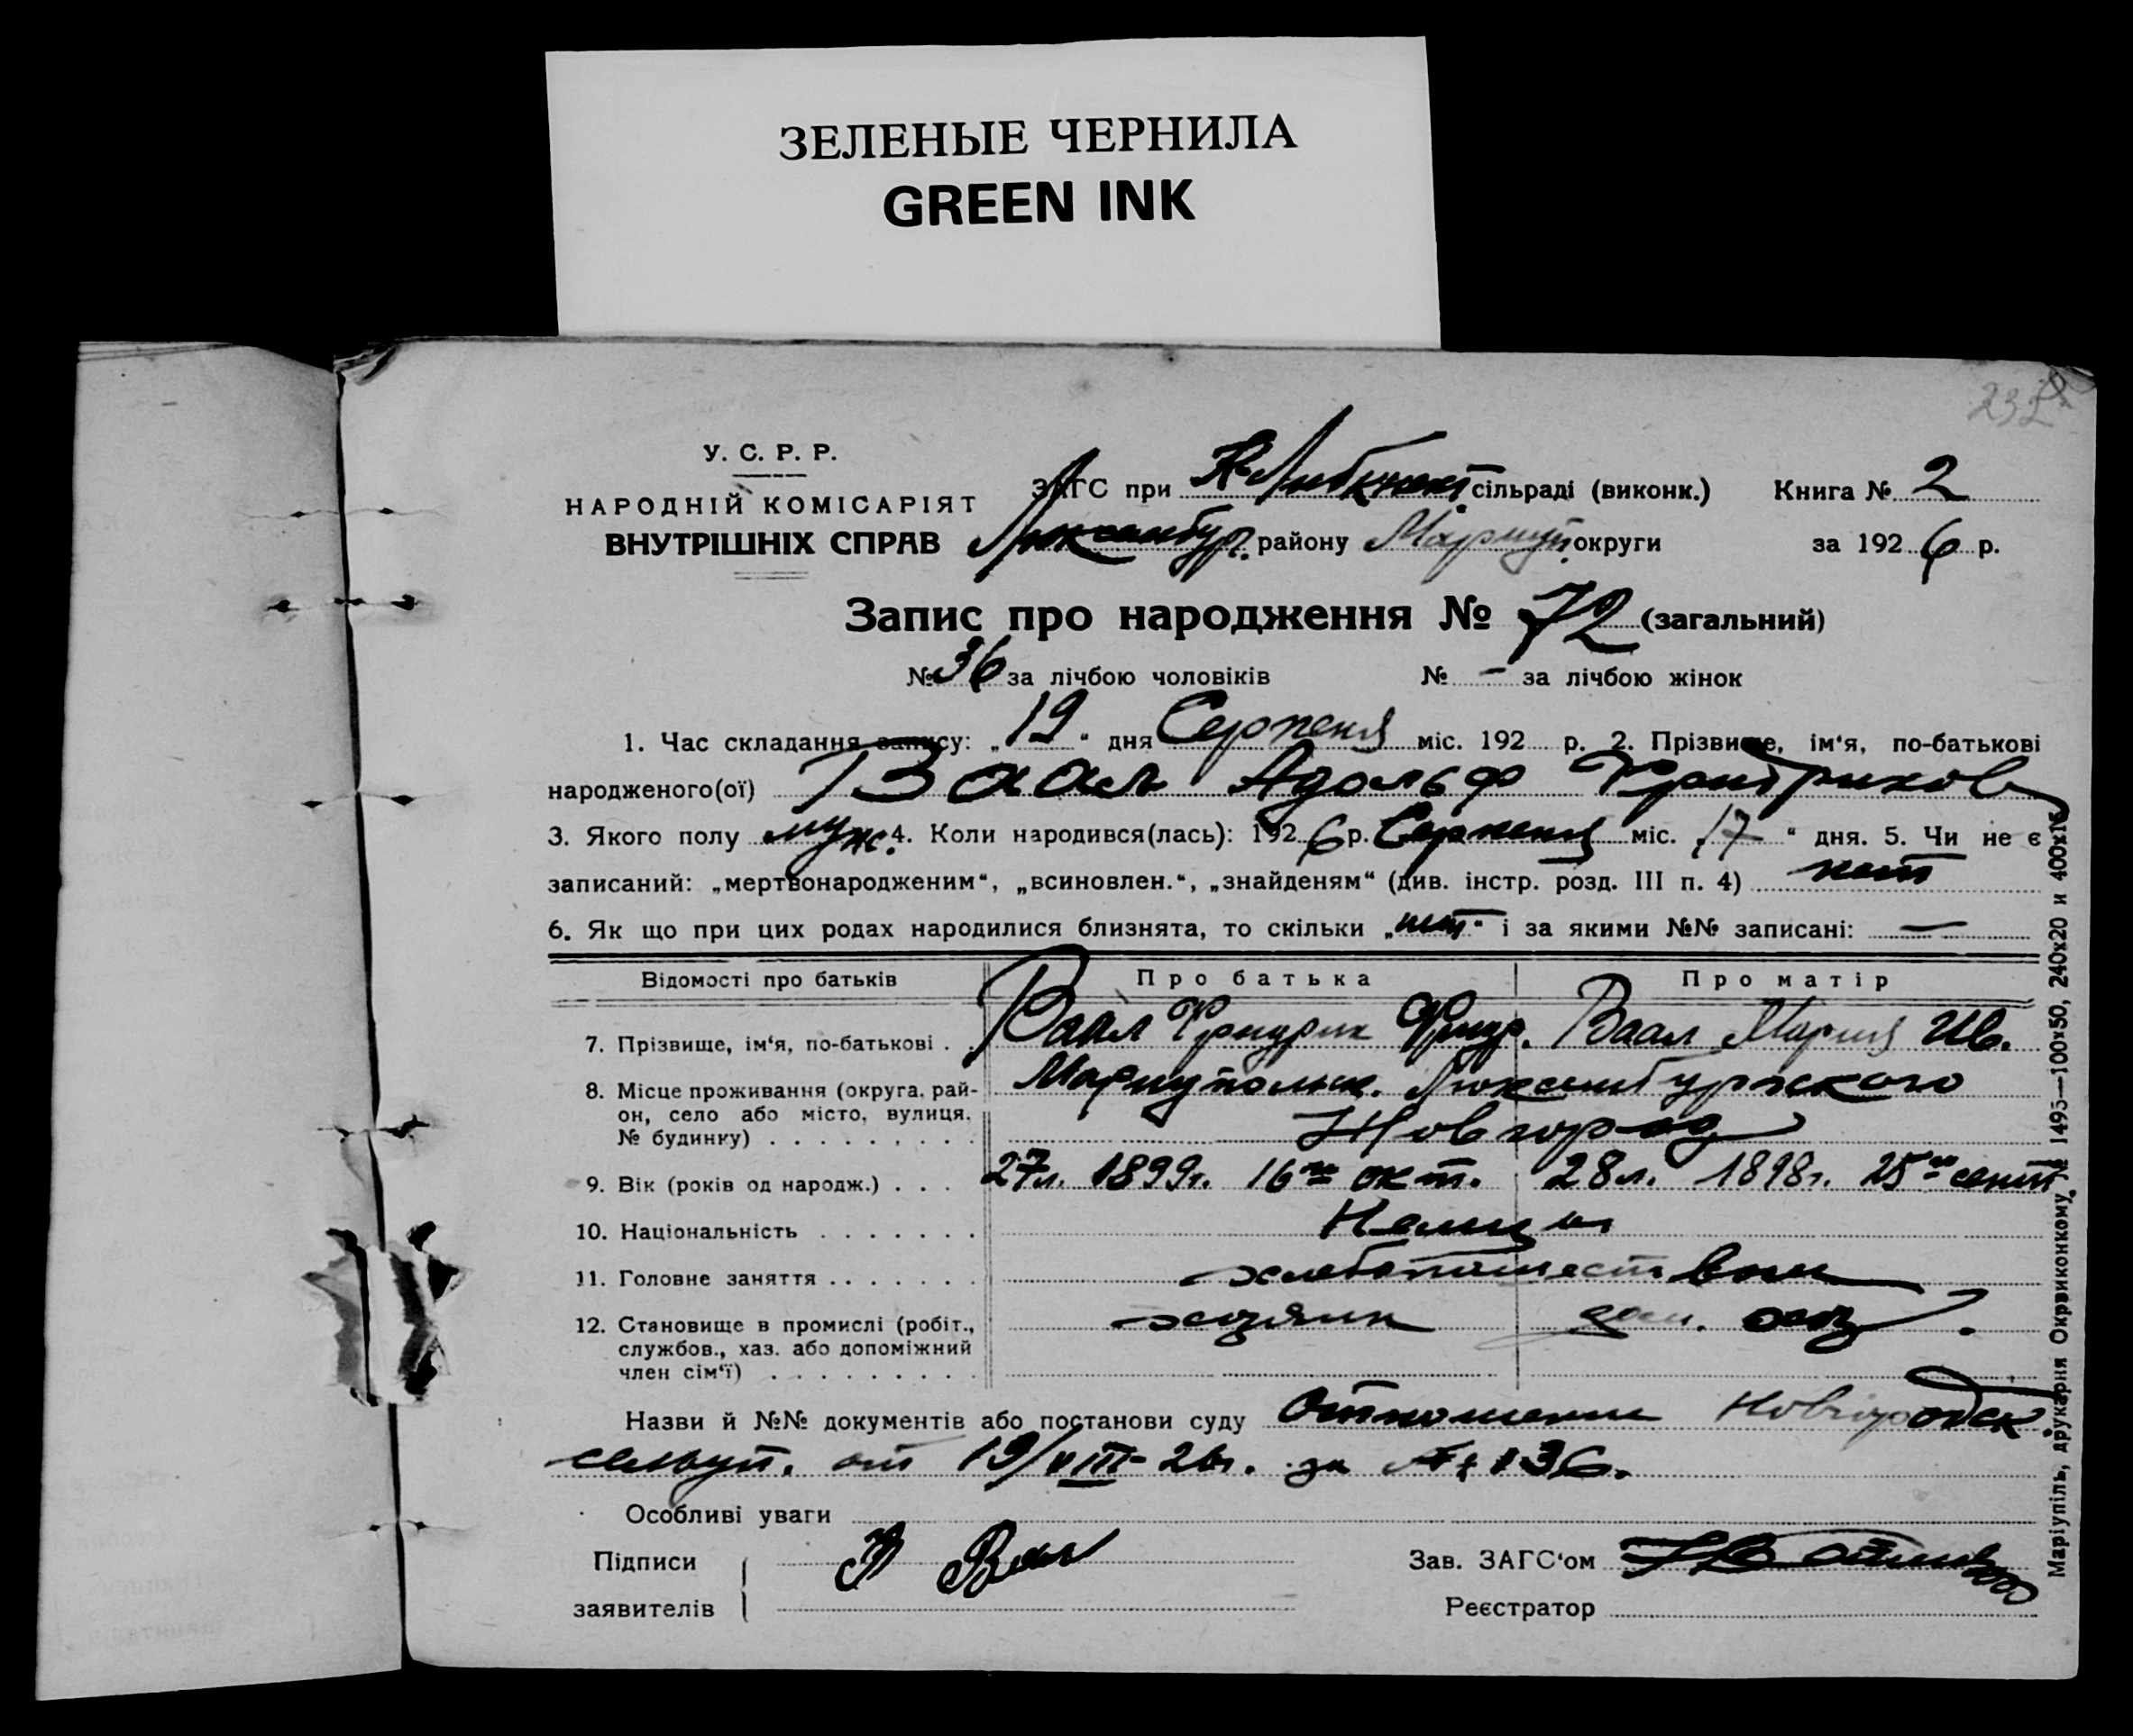 ЗЕЛЕНЫЕ ЧЕРНИЛА
GREEN INK
У. С. Р. Р.
НАРОДНІЙ КОМІСАРІЯТ
ВНУТРІШНІХ СПРАВ
ЗАГС при К. Либкнехт сільраді (виконк.) Книга № 2
Люксембур. району Мариуп. округи за 1926 р.
Запис про народження № 72 (загальний)
№ 36 за лічбою чоловіків № - за лічбою жінок
1. Час складання запису: „19“ дня Серпеня міс. 192 р. 2. Прізвище, ім‘я, по-батькові
народженого(ої) Ваал Адольф Фридрихов
3. Якого полу муж. 4. Коли народився(лась): 1926 р. Серпеня міс. „17“ дня. 5. Чи не є
записаний: „мертвонародженим“, „всиновлен.“, „знайденям“ (див. інстр. розд. III п. 4) нет
6. Як що при цих родах народилися близнята, то скільки „нет“ і за якими №№ записані: —
Відомості про батьків Про батька Про матір
7. Прізвище, ім‘я, по-батькові . Ваал Фридрих Фридр. Ваал Мария Ив.
8. Місце проживання (округа, рай- Мариупольск. Люксембургского
он, село або місто, вулиця,
№ будинку) . . . . . . . . . Новгород
9. Вік (років од народж.) . . . 27л. 1899г. 16го окт. 28л. 1898г. 25го сент.
10. Національність . . . . . . . Немцы
11. Головне заняття . . . . . . . хлебопашеством
12. Становище в промислі (робіт., хозяин дом. хоз.
службов., хаз. або допоміжний
член сім‘ї) . . . . . . . . .
Назви й №№ документів або постанови суду Отношение Новгородск.
сельуп. от 19/VIII-26г. за № 136.
Особливі уваги
Підписи Ваал Зав. ЗАГС‘ом
заявителів Реєстратор
Маріупіль, друкарня Окрвиконкому, № 1495—100х50, 240х20 и 400х15